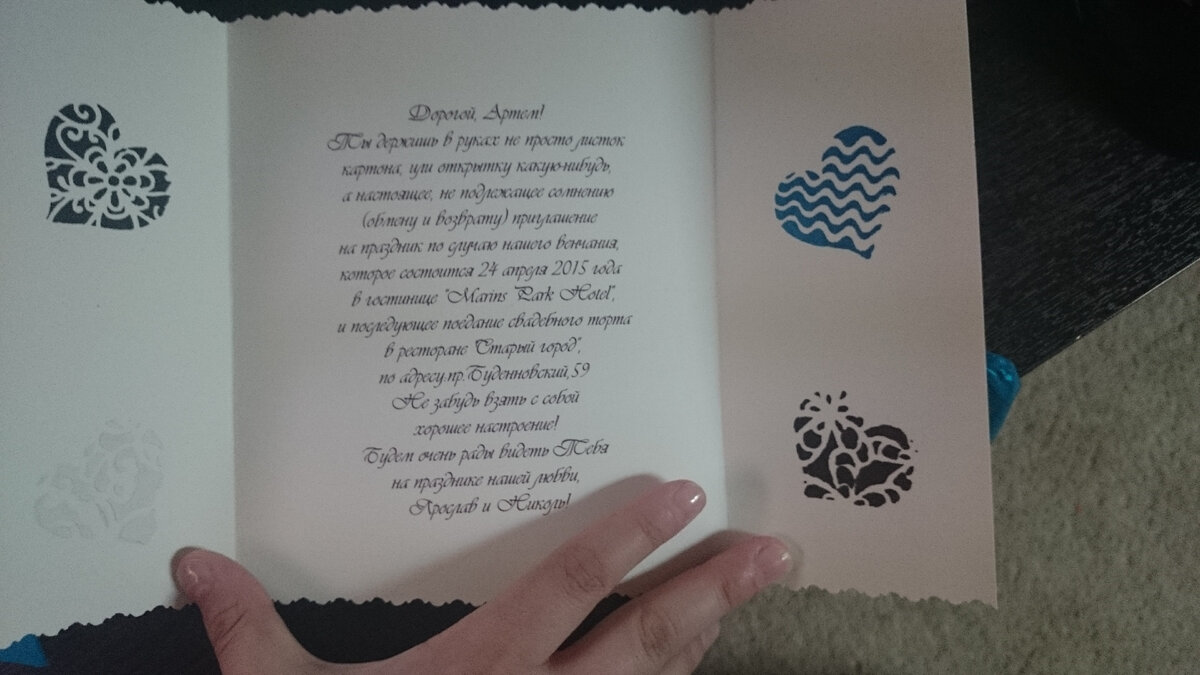 Дорогой, Артем!
Ты держишь в руках не просто листок
картона, или открытку какую-нибудь,
а настоящее, не подлежащее сомнению
(обмену и возврату) приглашение
на праздник по случаю нашего венчания,
которое состоится 24 апреля 2015 года
в гостинице "Marins Park Hotel",
и последующее поедание свадебного торта
в ресторане "Старый город",
по адресу:пр.Буденновский,59
Не забудь взять с собой
хорошее настроение!
Будем очень рады видеть Тебя
на празднике нашей любви,
Ярослав и Николь!